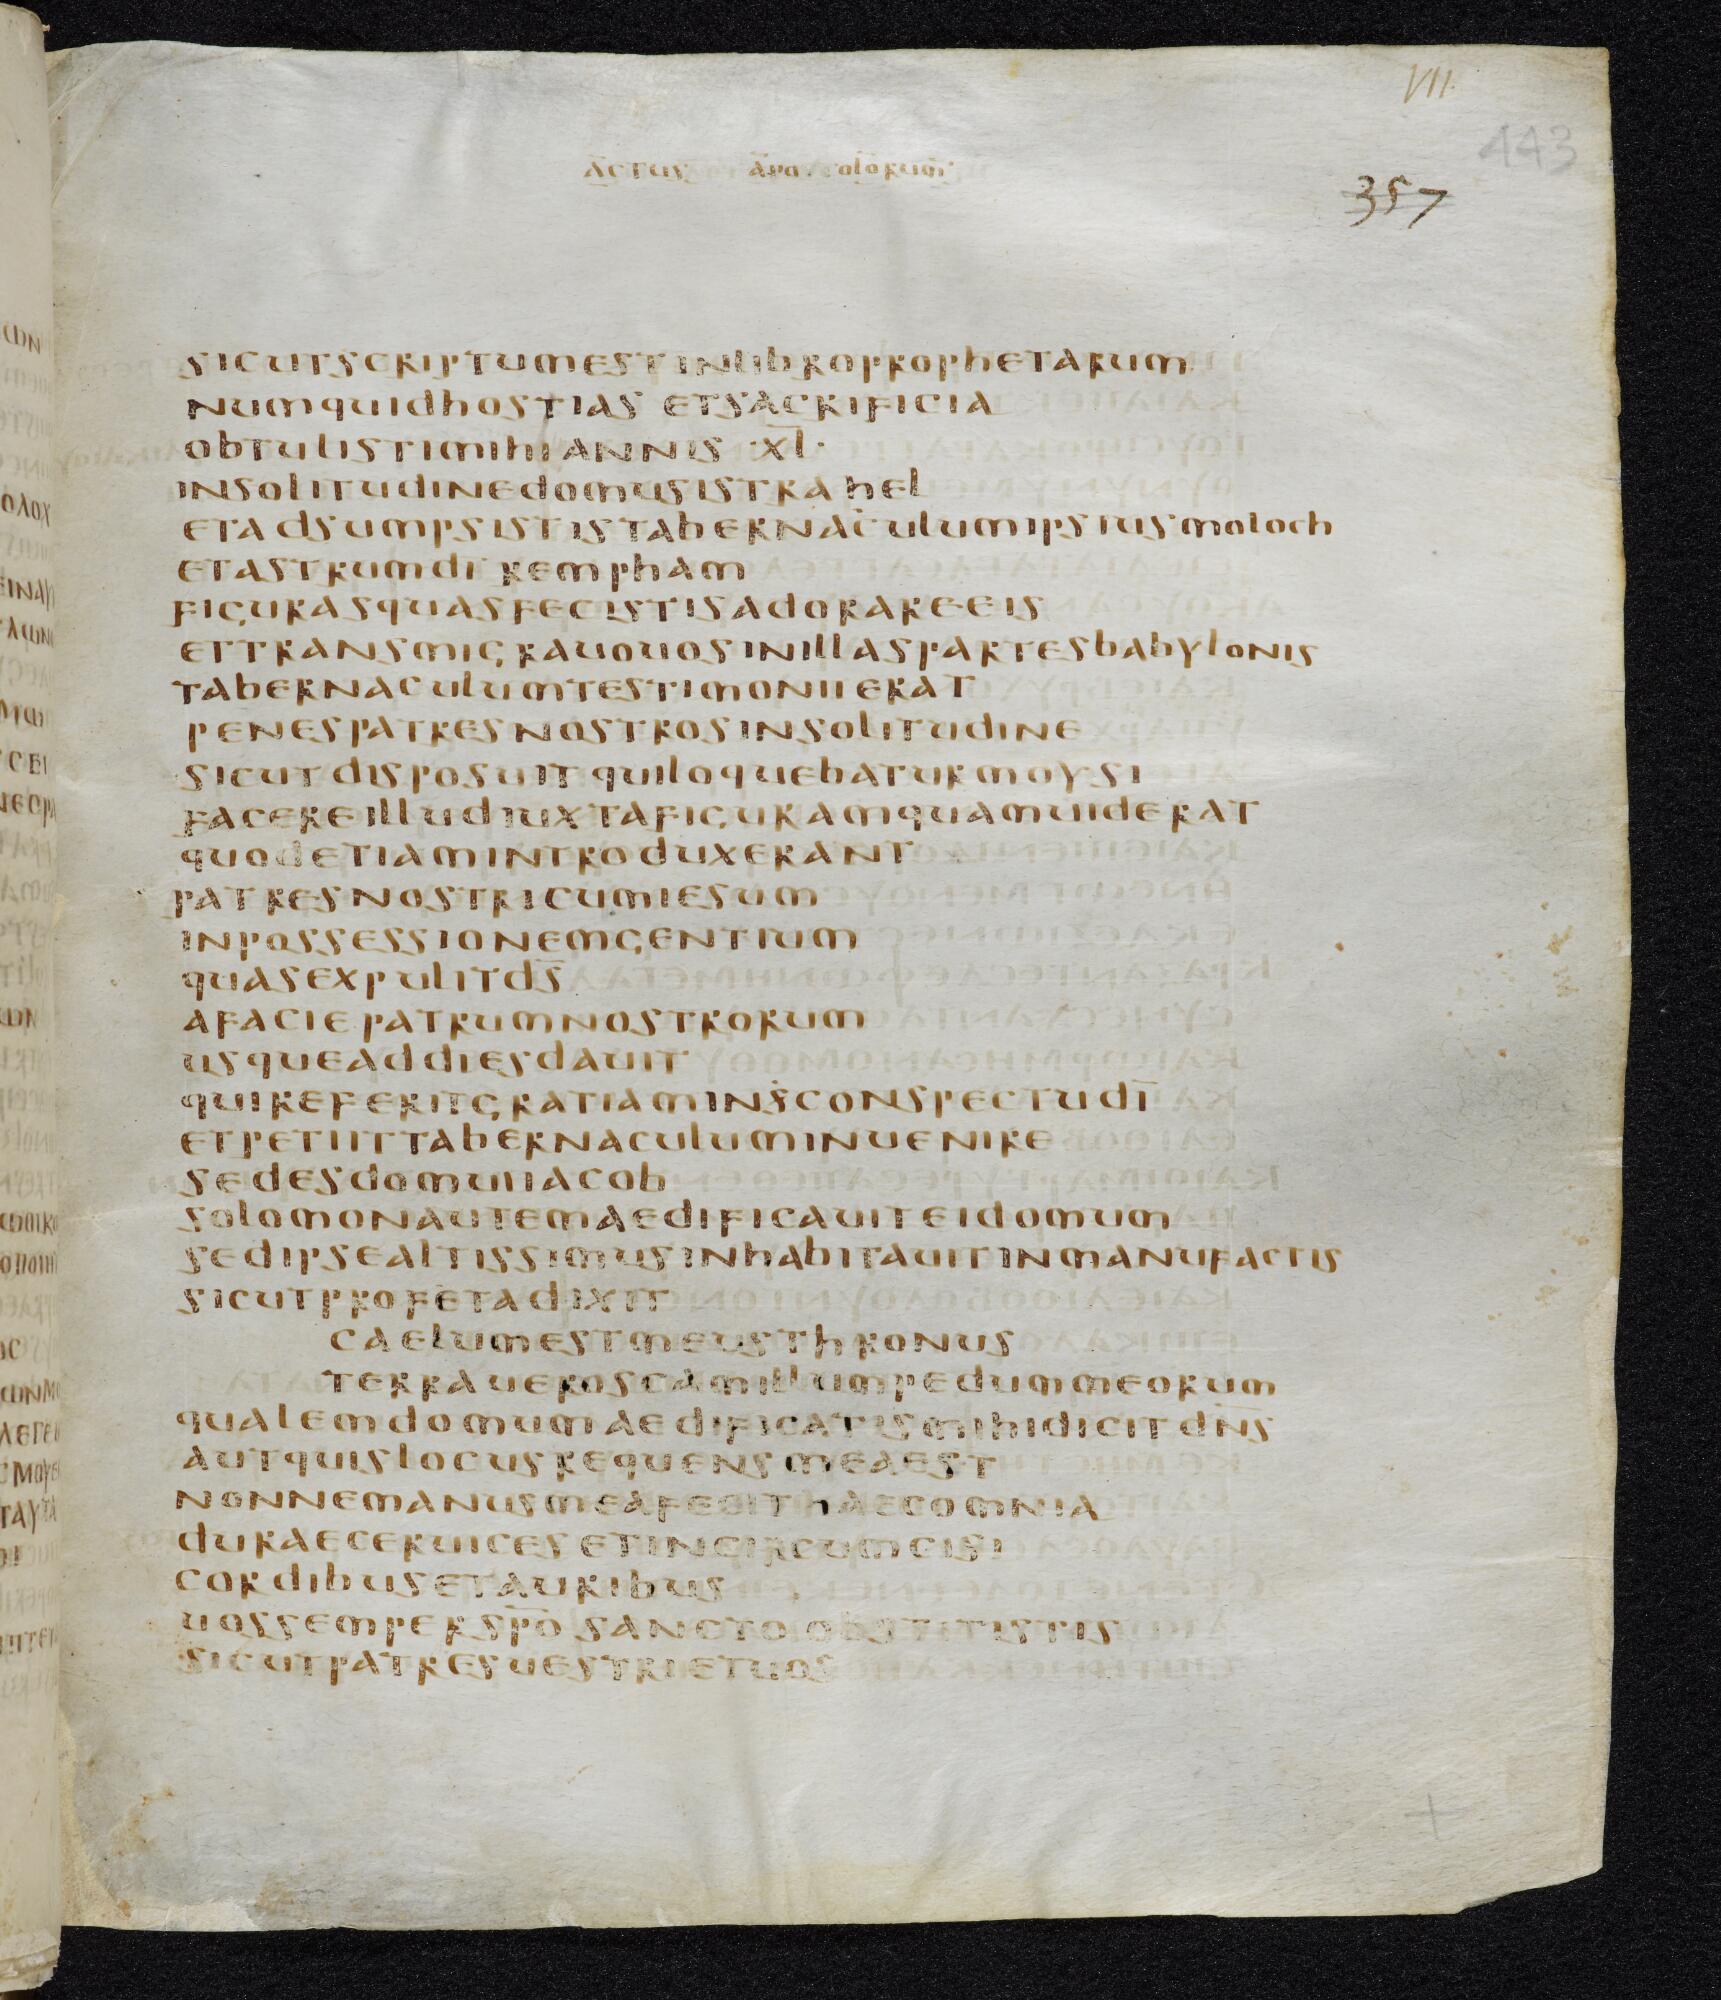 VII
443
ACTUS APOSTOLORUM
357
SICUT SCRIPTUM EST IN LIBRO PROPHETARUM
NUMQUID HOSTIAS ET SACRIFICIA
OBTULISTI MIHI ANNIS ·X̅L̅·
IN SOLITUDINE DOMUS ISTRAHEL
ET ADSUMPSISTIS TABERNACULUM IPSIUS MOLOCH
ET ASTRUM DI̅ REMPHAM
FIGURAS QUAS FECISTIS ADORARE EIS
ET TRANSMIGRAVO VOS IN ILLAS PARTES BABYLONIS
TABERNACULUM TESTIMONII ERAT
PENES PATRES NOSTROS IN SOLITUDINE
SICUT DISPOSUIT QUI LOQUEBATUR MOYSI
FACERE ILLUD IUXTA FIGURAM QUAM VIDERAT
QUOD ETIAM INTRODUXERANT
PATRES NOSTRI CUM IESUM
IN POSSESSIONEM GENTIUM
QUAS EXPULIT DS̅
A FACIE PATRUM NOSTRORUM
USQUE AD DIES DAVIT
QUI REFERIT GRATIAM INS CONSPECTU DI̅
ET PETIIT TABERNACULUM INVENIRE
SEDES DOMUI IACOB
SOLOMON AUTEM AEDIFICAVIT EI DOMUM
SED IPSE ALTISSIMUS INHABITAVIT IN MANUFACTIS
SICUT PROFETA DIXIT
CAELUM EST MEUS THRONUS
TERRA VERO SCAMILLUM PEDUM MEORUM
QUALEM DOMUM AEDIFICATIS MIHI DICIT DN̅S
AUT QUIS LOCUS REQUENS MEA EST
NONNE MANUS MEA FECIT HAEC OMNIA
DURAE CERVICES ET INCIRCUMCISI
CORDIBUS ET AURIBUS
VOS SEMPER SPO̅ SANCTO OBSTITISTIS
SICUT PATRES VESTRI ET VOS